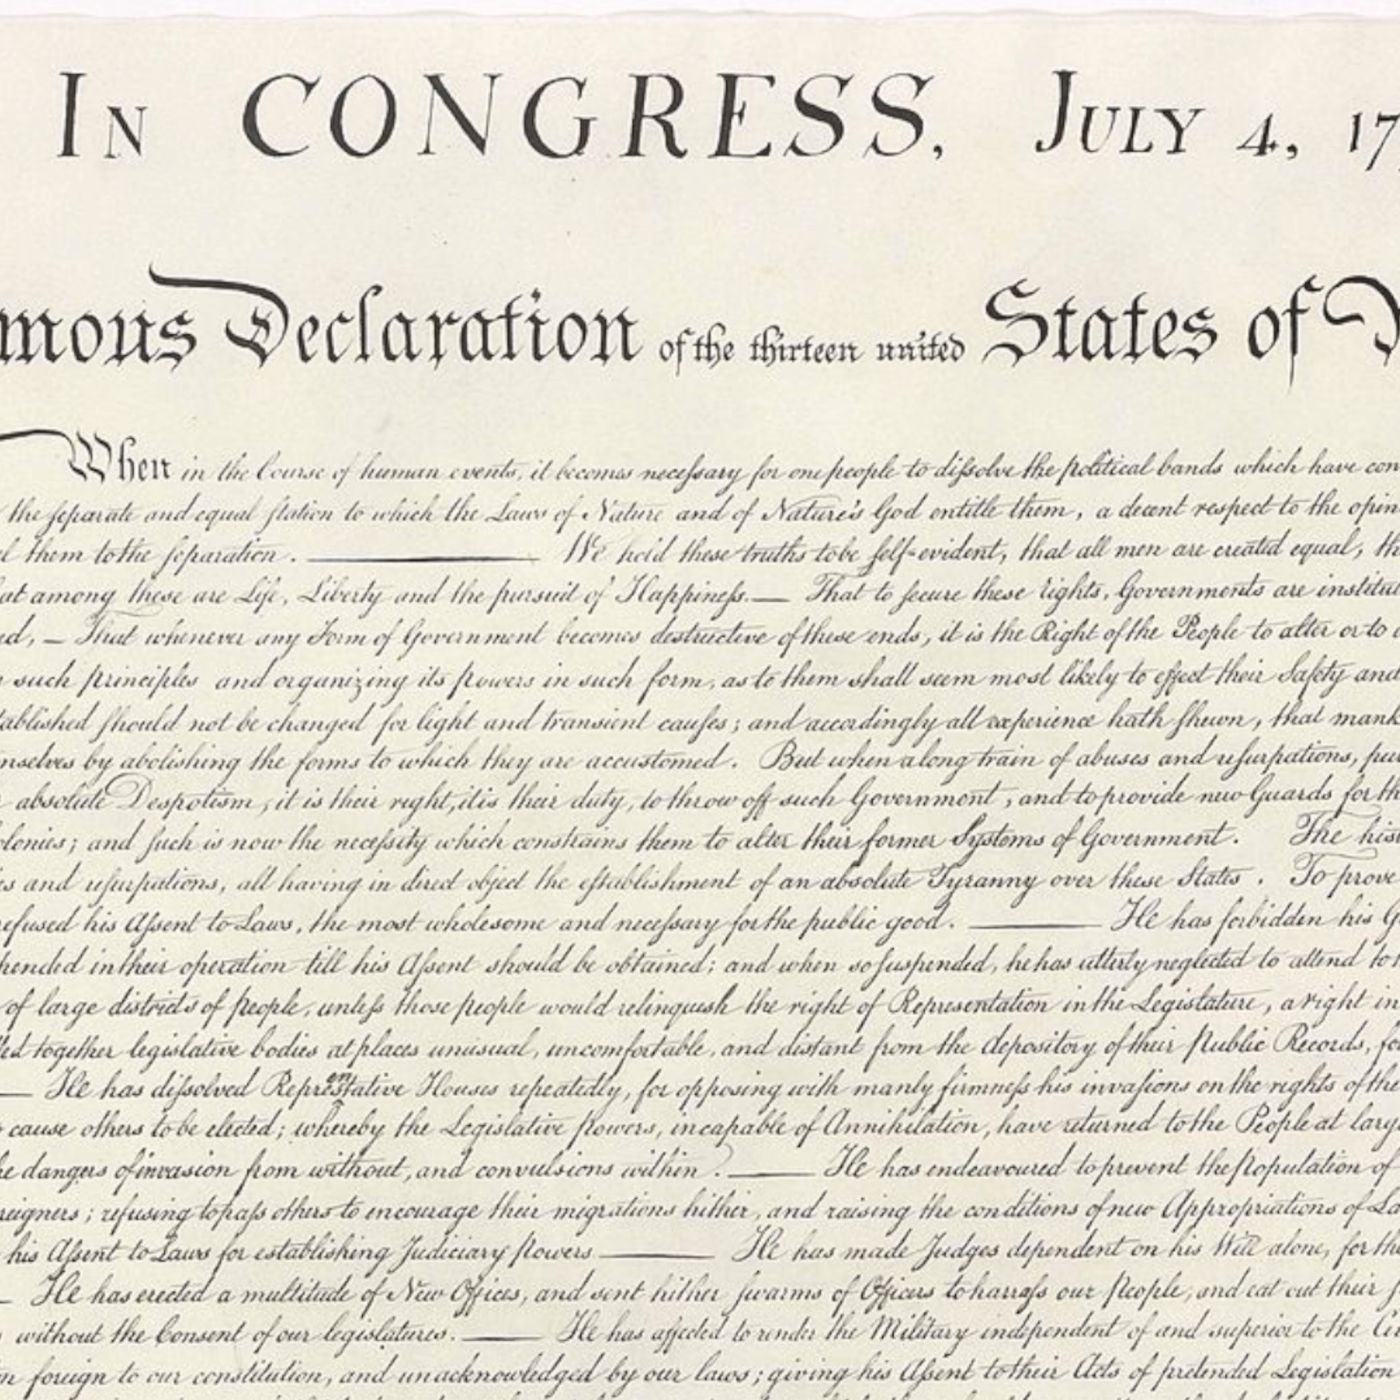 In CONGRESS, July 4, 17
mous Declaration of the thirteen united States of
When in the Course of human events, it becomes neceſsary for one people to diſsolve the political bands which have con
the ſeparate and equal ſtation to which the Laws of Nature and of Nature's God entitle them, a decent respect to the opin
l them to the ſeparation. ——— We hold these truths to be ſelf-evident, that all men are created equal, th
at among these are Life, Liberty and the pursuit of Happineſs.— That to ſecure these rights, Governments are institut
ed, — That whenever any Form of Government becomes destructive of these ends, it is the Right of the People to alter or to a
such principles and organizing its powers in such form, as to them shall seem most likely to effect their Safety and
tablished ſhould not be changed for light and transient cauſes; and accordingly all experience hath ſhewn, that mank
mselves by abolishing the forms to which they are accustomed. But when a long train of abuses and uſurpations, pur
absolute Despotism, it is their right, it is their duty, to throw off such Government, and to provide new Guards for th
olonies; and ſuch is now the neceſsity which constrains them to alter their former Systems of Government. The hist
es and uſurpations, all having in direct object the eſtablishment of an absolute Tyranny over these States. To prove
efused his Aſsent to Laws, the most wholesome and neceſsary for the public good. ——— He has forbidden his G
pended in their operation till his Aſsent should be obtained; and when so ſuspended, he has utterly neglected to attend to t
of large districts of people, unleſs those people would relinquish the right of Representation in the Legislature, a right in
led together legislative bodies at places unusual, uncomfortable, and distant from the depository of their Public Records, fo
— He has diſsolved Representative Houses repeatedly, for opposing with manly firmneſs his invaſions on the rights of the
cause others to be elected; whereby the Legislative Powers, incapable of Annihilation, have returned to the People at larg
he dangers of invasion from without, and convulsions within. —— He has endeavoured to prevent the Population of
reigners; refusing to paſs others to encourage their migrations hither, and raising the conditions of new Appropriations of La
his Aſsent to Laws for establishing Judiciary Powers ——— He has made Judges dependent on his Will alone, for the
— He has erected a multitude of New Offices, and sent hither ſwarms of Officers to harraſs our People, and eat out their ſ
without the Consent of our legislatures. —— He has affected to render the Military independent of and superior to the Civ
n foreign to our constitution, and unacknowledged by our laws; giving his Aſsent to their Acts of pretended Legislation